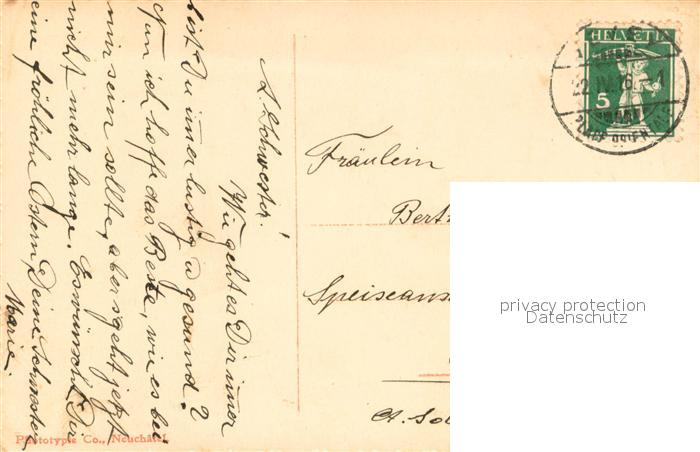 A. Schwester!
Wie geht es Dir immer
bist Du immer lustig u gesund?
Nun ich hoffe das Beste, wie es bei
mir sein sollte, aber s'geht jetzt
nicht mehr lange. Es wünscht Dir
eine fröhliche Ostern, Deine Schwester
Marie.
Fräulein
Bert
Speiseans
Ct. Sol
HELVETIA
5
22.IV.
Phototypie Co., Neuchâtel.
privacy protection
Datenschutz